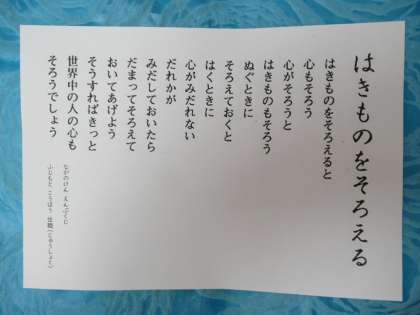 はきものをそろえる
はきものをそろえると
心もそろう
心がそろうと
はきものもそろう
ぬぐときに
そろえておくと
はくときに
心がみだれない
だれかが
みだしておいたら
だまってそろえて
おいてあげよう
そうすればきっと
世界中の人の心も
そろうでしょう
ながのけん えんぷくじ
ふじもと こうほう 住職(じゅうしょく)